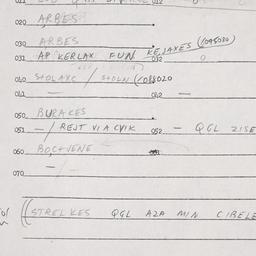 020 ARBES
030 ARBES
031 AP KERLAX FUN KEJAXES (/095030) 032 0
040 STOLAXC / STOLN (/088020
041 — 042 —
050 BURAKES
051 — / REJT VIA CVIK 052 — QGL ZISE
060 BOCTVENE
— / —
070
STRELKES QGL AZA MIN CIBELE